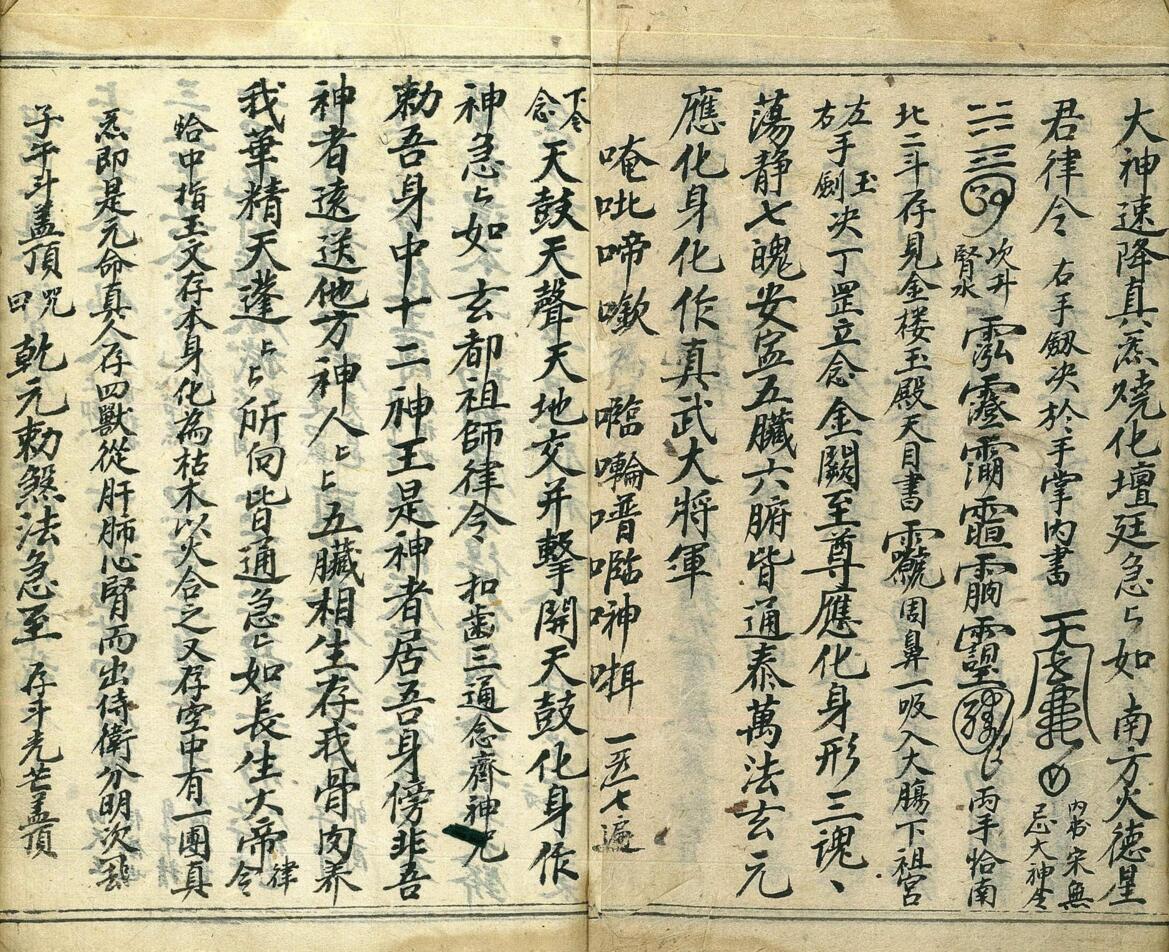 大神速降真炁燒化壇廷急々如南方火德星
君律令 右手劒决於手掌內書 內书宋無忌大神令
吹升腎水 丙手恰南
北二斗存見金樓玉殿天目書 周鼻一吸入大膓下祖宮
左右手玉劍决丁罡立念金闕至尊應化身形三魂丶
蕩静七魄安寍五臟六腑皆通泰萬法玄元
應化身化作真武大將軍
唵吡啼㘔 㘋㖮噆㘋呻㗏 一炁七遍
下念令天鼓天聲天地交并擊開天鼓化身作
神急々如玄都祖師律令 扣齒三通念齊神咒
勅吾身中十二神王是神者居吾身傍非吾
神者遠送他方神人々々五臟相生存我骨肉养
我華精天蓬々々所向皆通急々如長生大帝律令
恰中指玉文存本身化為枯木以火合之又存空中有一團真
炁即是元命真人存四獸從肝肺心腎而出侍衛分明次
子午斗盖頂咒曰乾元勅煞法急至 存斗光芒盖頂